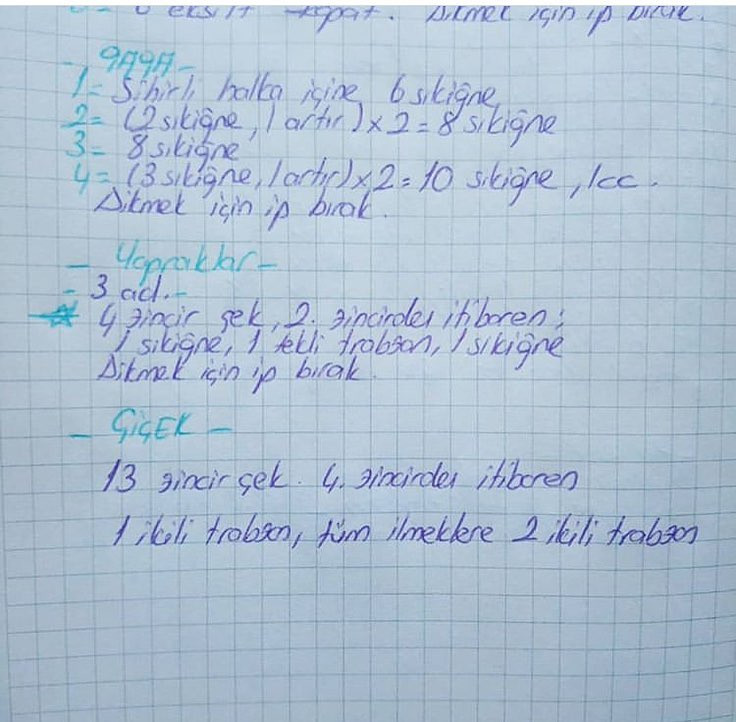 6 eksilt kapat. Dikmek için ip bırak.
- GAGA -
1= Sihirli halka içine 6 sıkiğne
2= (2 sıkiğne, 1 artır) x 2 = 8 sıkiğne
3= 8 sıkiğne
4= (3 sıkiğne, 1 artır) x 2 = 10 sıkiğne, 1cc.
Dikmek için ip bırak.
- Yapraklar -
- 3 ad. -
4 zincir çek, 2. zincirden itibaren:
1 sıkiğne, 1 tekli trabzan, 1 sıkiğne
Dikmek için ip bırak.
- ÇİÇEK -
13 zincir çek. 4. zincirden itibaren
1 ikili trabzan, tüm ilmeklere 2 ikili trabzan